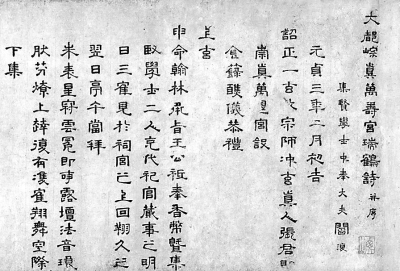 大都崇真萬壽宮瑞鶴詩并序
集賢學士中奉大夫閻復
元貞三年二月初吉
詔正一大宗師沖玄真人張君即
崇真萬壽宮設
金籙醮儀恭禮
上玄
申命翰林承旨王公祗奉香幣曁集
賢學士二人充代祀官蕆事之明
日三隺見於祠宮之上回翔久之
翌日亭午當拜
朱表星穹雲冕即事露壇法音瓌
然芬燎上復有雙隺翔舞空際
下集